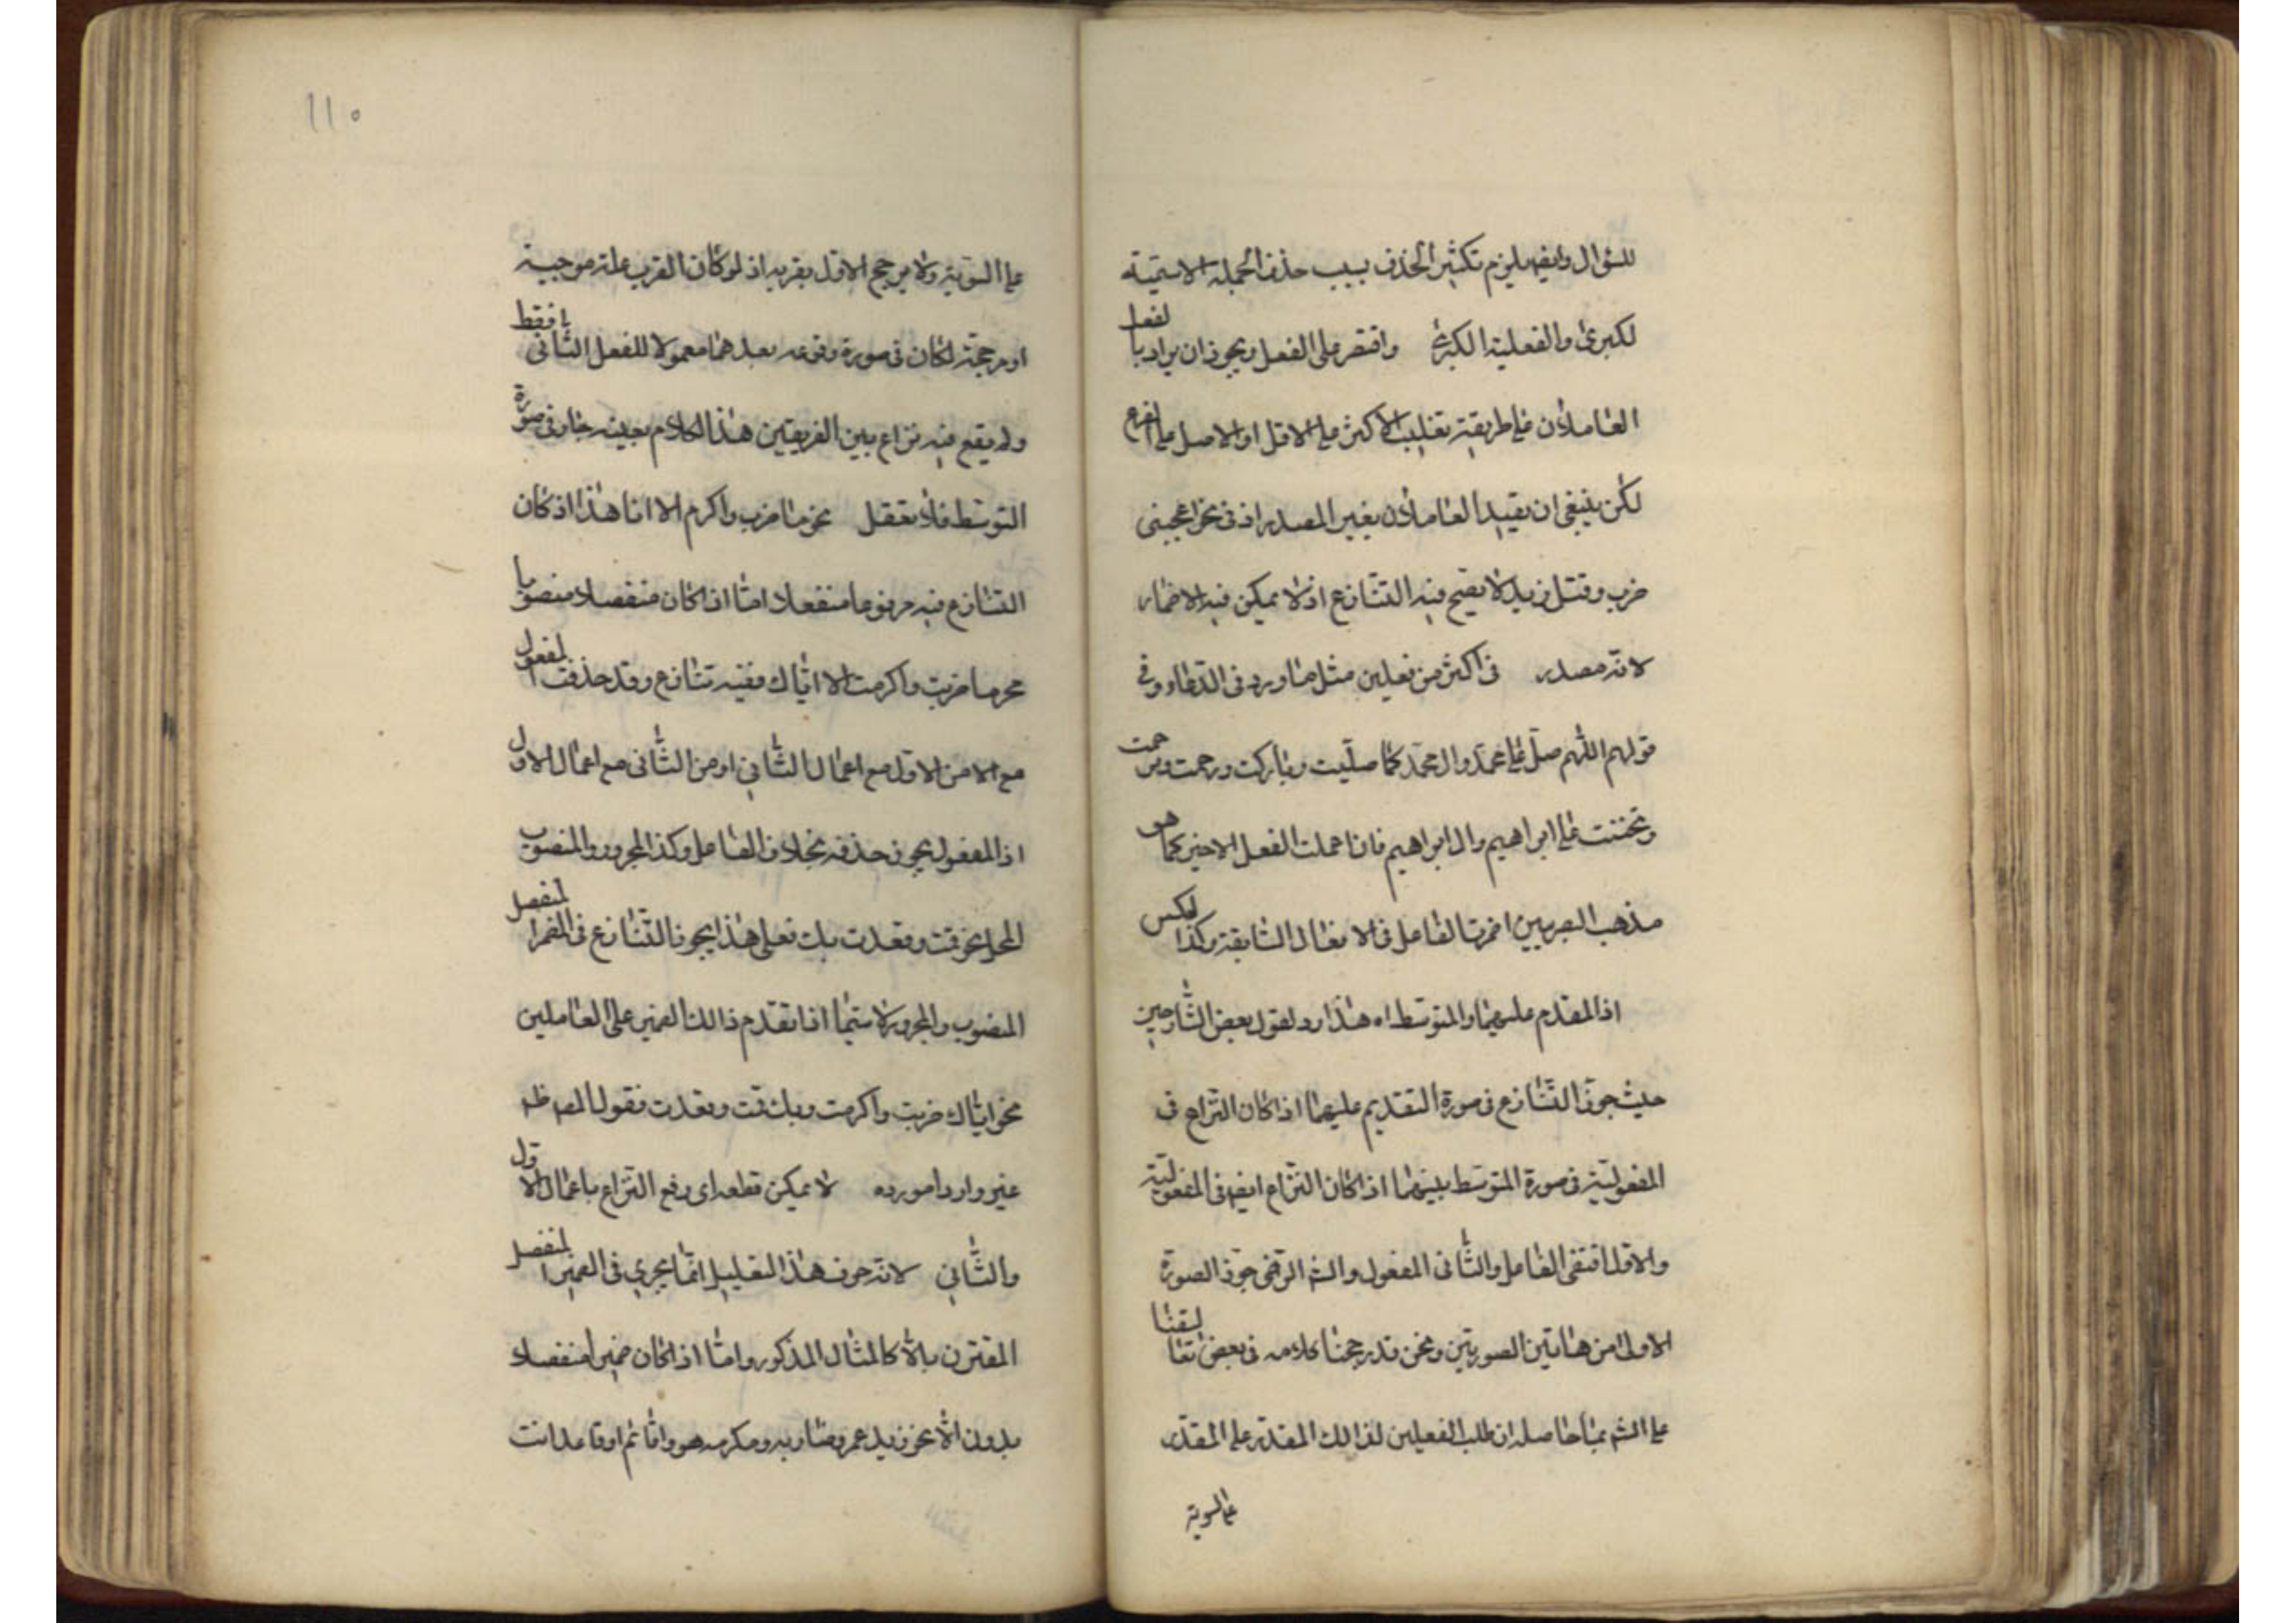 للسؤال وايضه يلزم تكثير الحذف بسبب حذف الجملة الاسميته
لكبرى والفعلية الكبرى واقتصر على الفعل ويجوز ان يراد بالفعل
العاملان على طريقة تغليب الاكثر على الاقل او الاصل على الفرع
لكن ينبغي ان يقيد العاملان بغير المصدر اذ في نحو اعجبني
ضرب وقتل زيد لا يصح فيه التنازع اذ لا يمكن فيه الاضمار
لانه مصدر في اكثر من فعلين مثل ما ورد في الدعاء وفي
قولهم اللهم صل على محمد وال محمد كما صليت وباركت ورحمت وترحمت
وتحننت على ابراهيم وال ابراهيم فان اعملت الفعل الاخير كما هو
مذهب البصريين اضمرت الفاعل في الافعال السابقة وكذا لعكس
اذ المقدم عليهما والمتوسط اه هذا رد لقول بعض الشارحين
حيث جوز التنازع في صورة التقديم عليهما اذا كان النزاع في
المفعولية في صورة المتوسط بينهما اذا كان النزاع ايضه في المفعولية
والاول اقتضى الفاعل والثاني المفعول والشه الرضي جوز الصورة
الاولى من هاتين الصورتين ونحن قد رجحنا كلامه في بعض تعاليقنا
على الشه بما حاصله ان طلب الفعلين لذالك المقدم على المقدر
على السوية
١١٥
على السوية ولا يرجح الاول بقربه اذ لو كان القرب علة موجبة
او مرجحة لكان في صورة وقوعه بعدهما معمولا للفعل الثاني فقط
ولم يقع فيه نزاع بين الفريقين هذا الكلام بعينه جار في صورة
التوسط فلا تعقل نحو ما ضرب واكرم الا انا هذا اذ كان
التنازع فيه مرفوعا منفصلا امّا اذا كان منفصلا منصوبا
نحو ما ضربت واكرمت الا اياك ففيه تنازع وقد حذفت المفعول
مع الا من الاول مع اعمال الثاني او من الثاني مع اعمال الاول
اذ المفعول يجوز حذفه بخلاف الفاعل وكذا المجرور والمنصوب
المحل نحو قمت وقعدت بك فعلى هذا يجوز التنازع في المضمر المنفصل
المنصوب والمجرور لا سيما اذا تقدم ذالك الضمير على العاملين
نحو اياك ضربت واكرمت وبك قمت وقعدت فقول المصه ظه
غير وارد مورده لا يمكن قطعه اي رفع النزاع باعمال الاول
والثاني لانه حرف هذا التعليل انما يجري في الضمير المنفصل
المقترن بالا كالمثال المذكور وامّا اذا كان ضميرا منفصلا
بدون الا نحو زيد عمرو ضاربه ومكرمه هو واقائم او قاعد انت